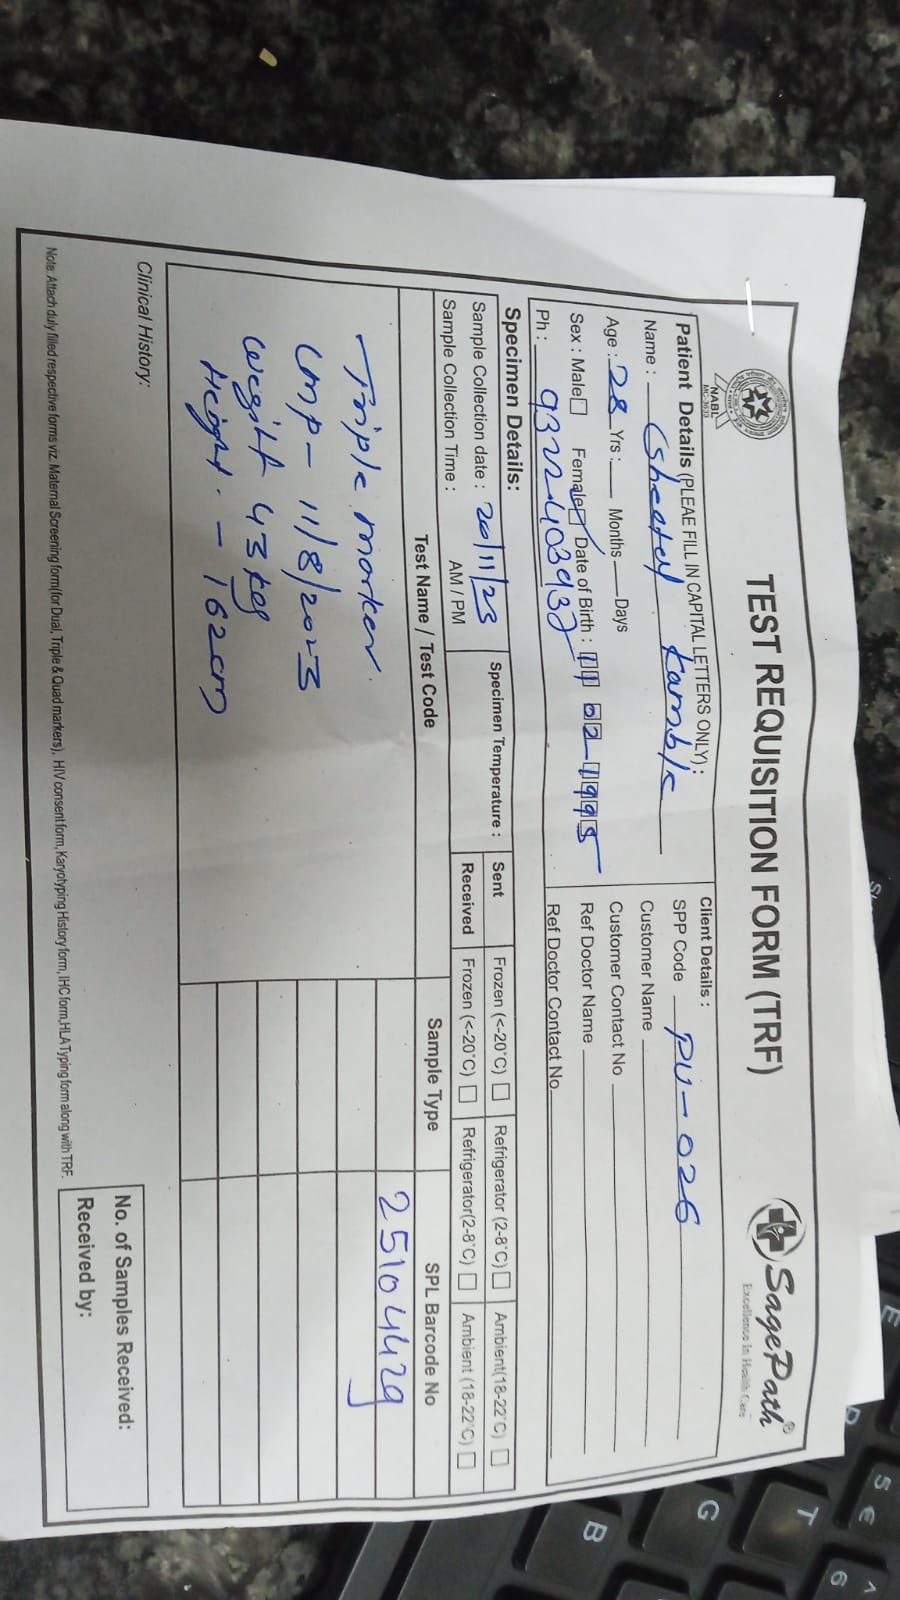 TEST REQUISITION FORM (TRF)
NABL
MC-3633
SagePath®
Excellence In Health Care
Patient Details (PLEAE FILL IN CAPITAL LETTERS ONLY) :
Name : Sheetal Kamble
Age : 28 Yrs : Months Days
Sex : Male Female Date of Birth : 11 02 1995
Ph : 9322403932
Client Details :
SPP Code PU-026
Customer Name
Customer Contact No
Ref Doctor Name
Ref Doctor Contact No
Specimen Details:
Sample Collection date : 20/11/23
Sample Collection Time : AM / PM
Specimen Temperature :
Sent Frozen (<-20°C) Refrigerator (2-8°C) Ambient(18-22°C)
Received Frozen (<-20°C) Refrigerator(2-8°C) Ambient (18-22°C)
Test Name / Test Code Sample Type SPL Barcode No
25104429
Triple marker
LMP - 11/8/2023
Weight 43 kg
Height. - 162cm
Clinical History:
No. of Samples Received:
Received by:
Note: Attach duly filled respective forms viz. Maternal Screening form(for Dual, Triple & Quad markers), HIV consent form, Karyotyping History form, IHC form,HLA Typing form along with TRF.
E
R
5 €
6 ^
T
G
B